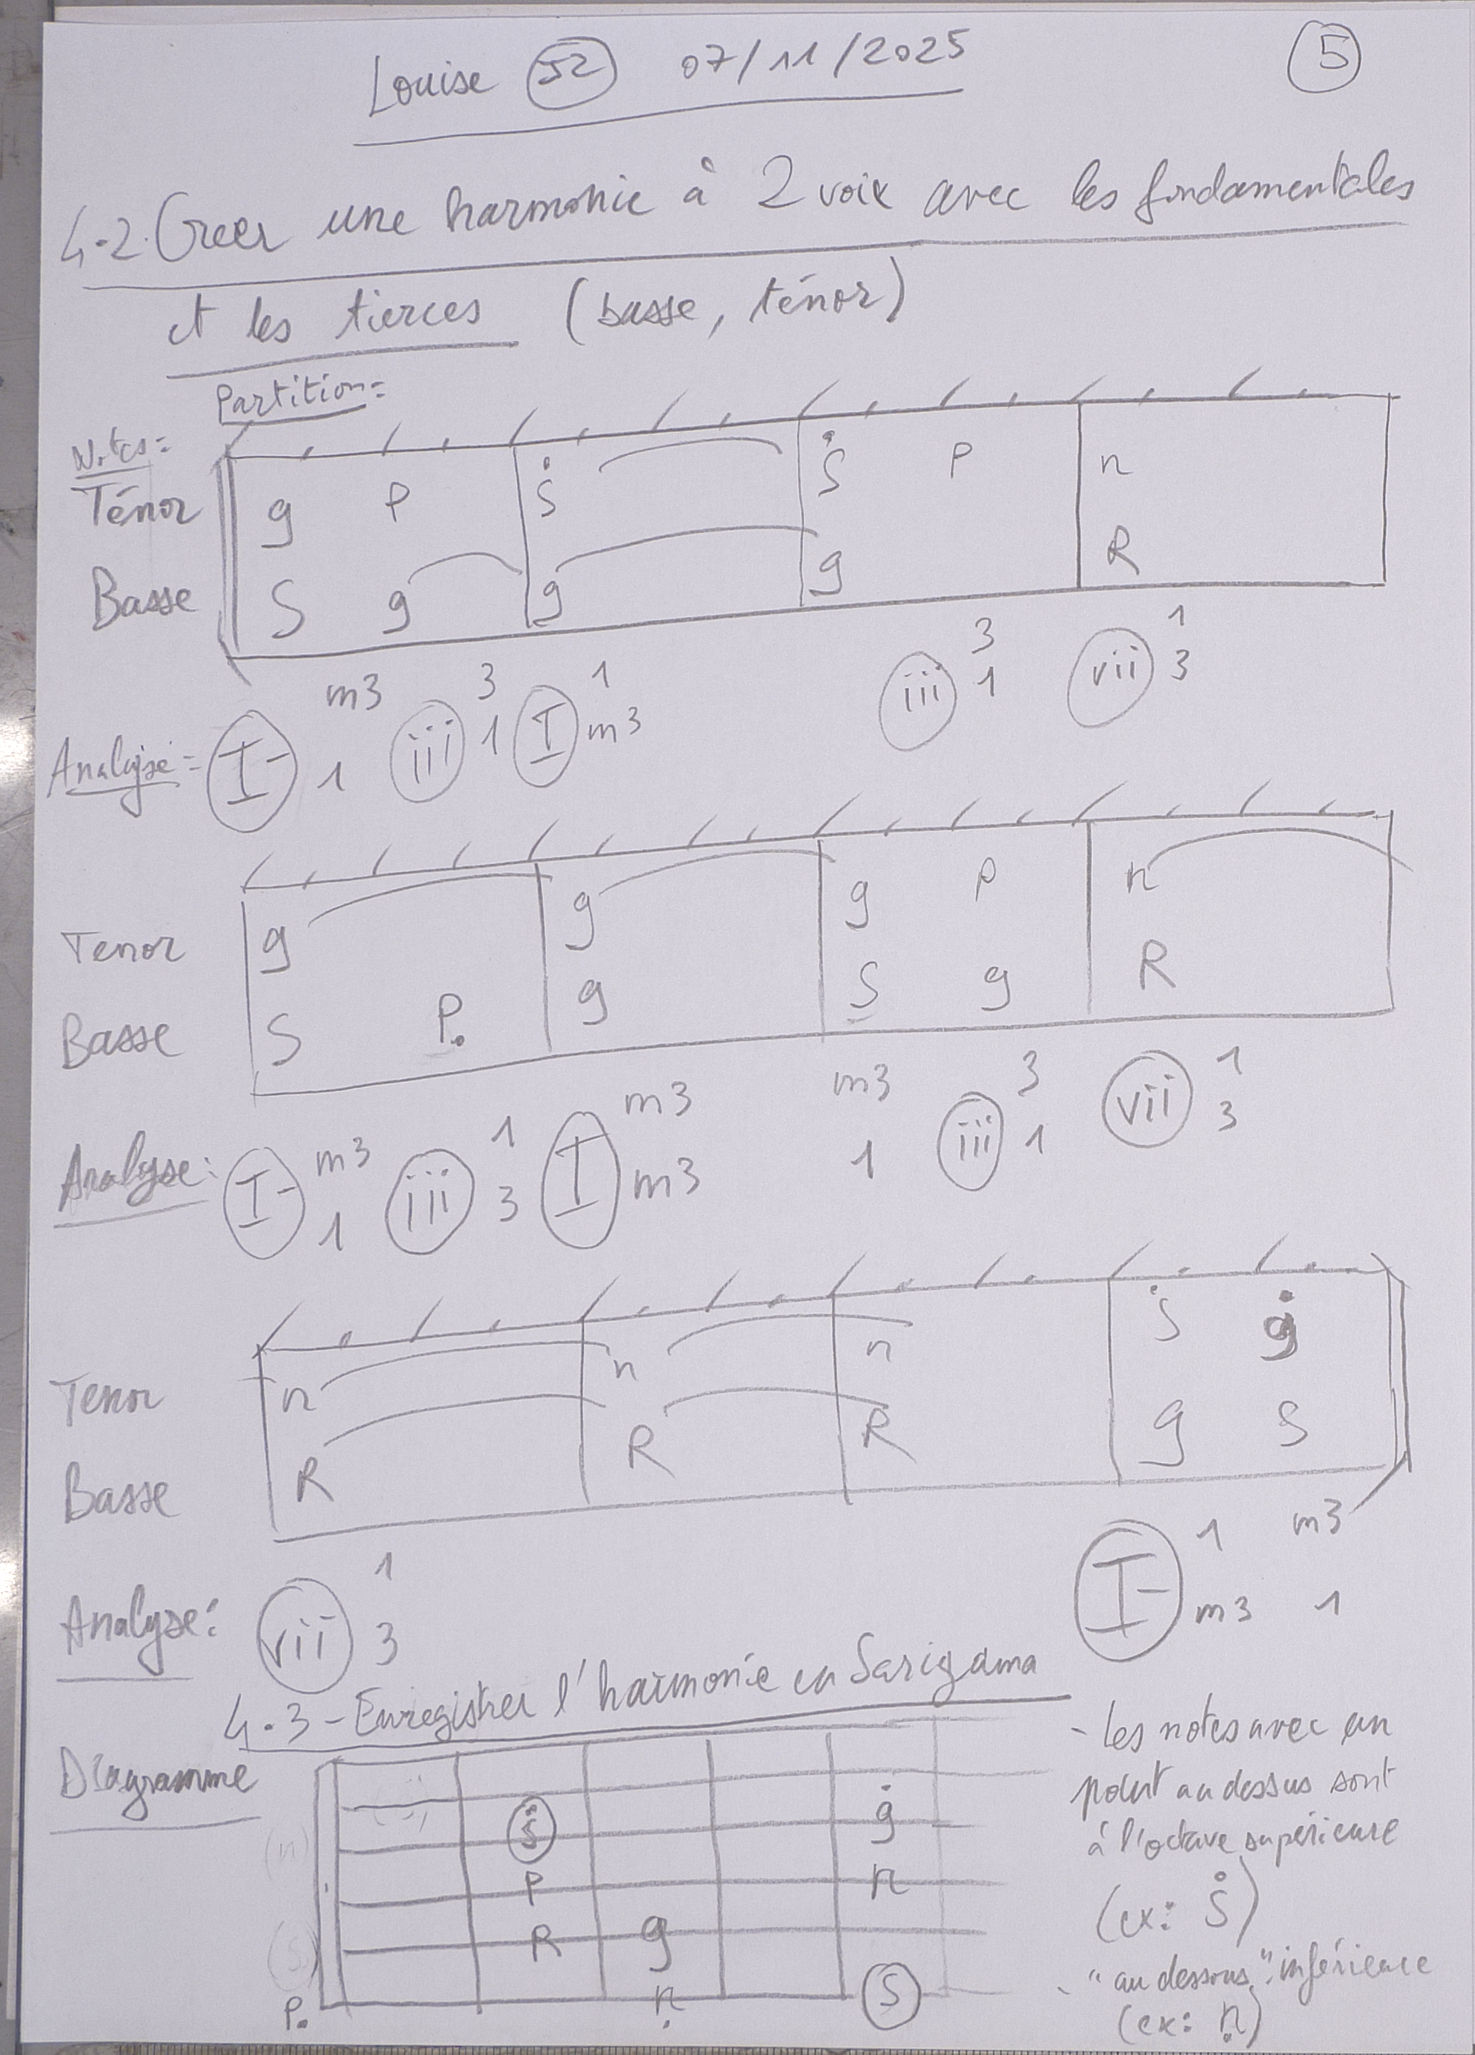 Louise 52 07/11/2025 5
4.2. Creer une harmonie à 2 voix avec les fondamentales
et les tierces (basse, ténor)
Partition:
Notes:
Ténor g P Ṡ Ṡ P n
Basse S g g g R
m3 3 1 3 1
Analyse: I- 1 iii 1 I m3 iii 1 vii 3
Tenor g g g P n
Basse S P. g S g R
m3 1 m3 m3 3 1
Analyse: I- 1 iii 3 I m3 1 iii 1 vii 3
Tenor n n n Ṡ ġ
Basse R R R g S
1 1 m3
Analyse: vii 3 I- m3 1
4.3 - Enregistrer l'harmonie en Sarigama
Diagramme
Ṡ ġ
(n) P n
R g
(S)
P. ṇ S
- les notes avec un
point au dessus sont
à l'octave supérieure
(ex: Ṡ)
- "au dessous" inférieure
(ex: ṇ)